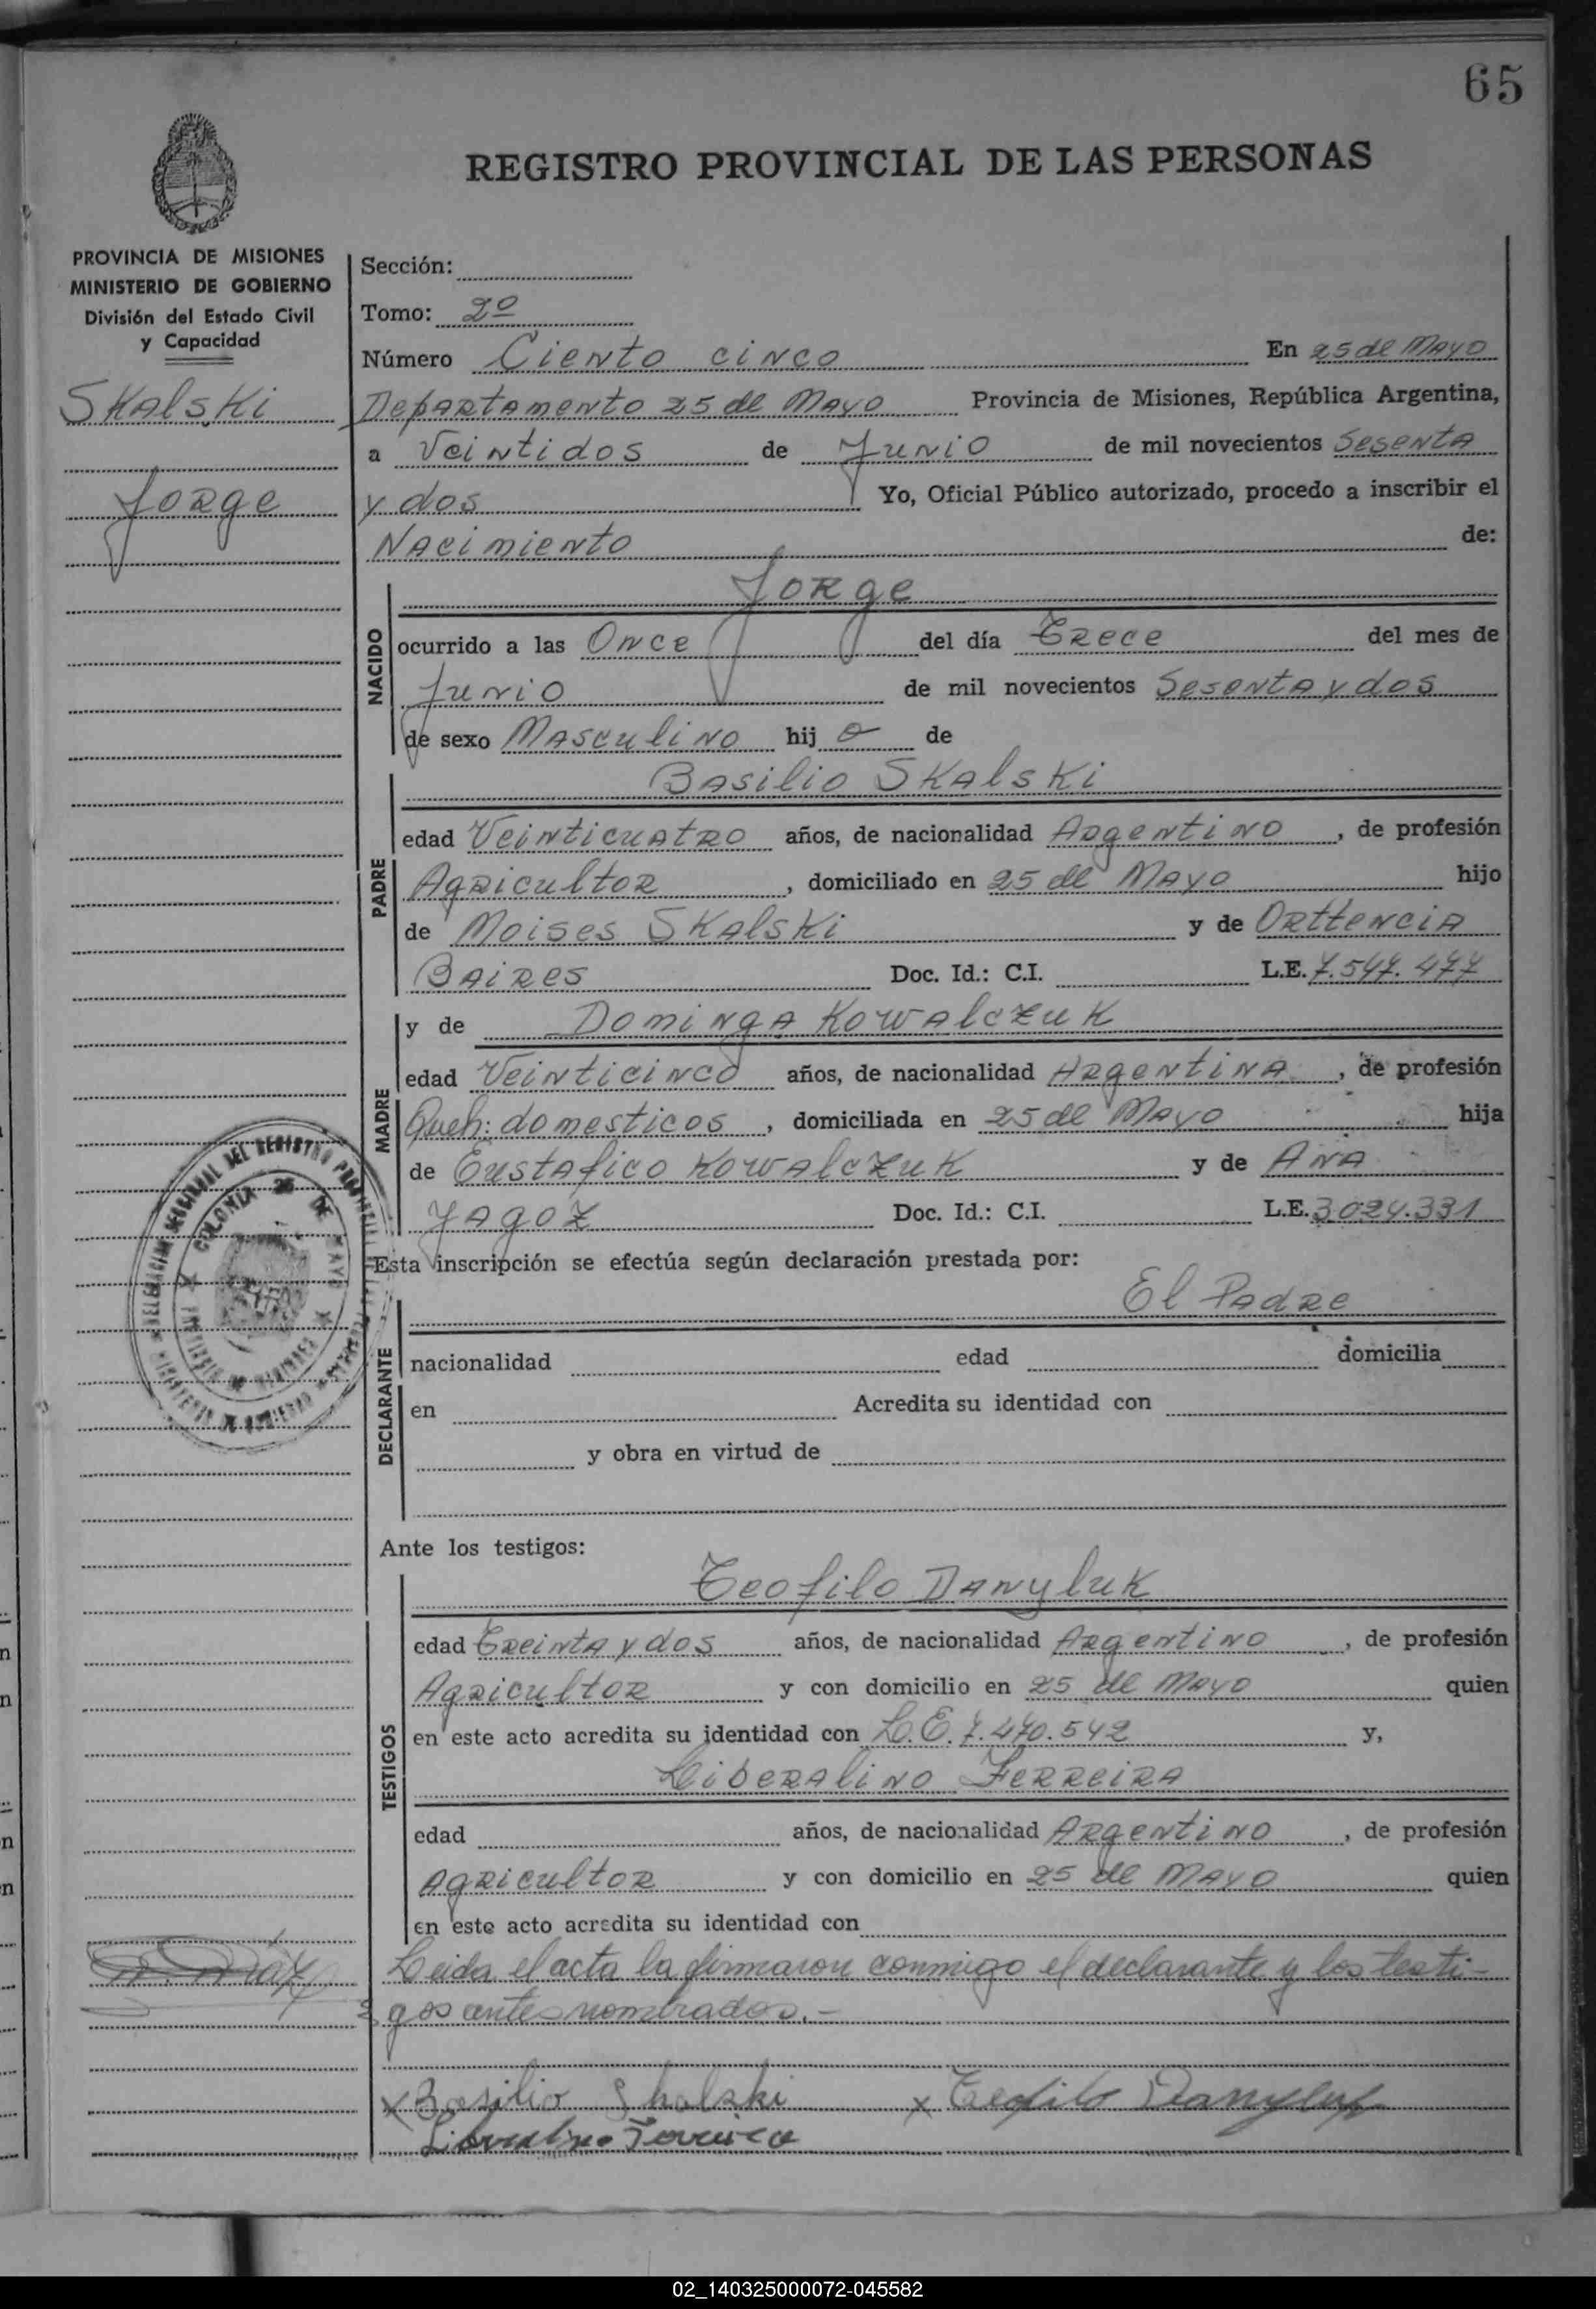 65
REGISTRO PROVINCIAL DE LAS PERSONAS
PROVINCIA DE MISIONES
MINISTERIO DE GOBIERNO
División del Estado Civil
y Capacidad
Skalski
Jorge
Sección:
Tomo: 2º
Número Ciento cinco En 25 de Mayo
Departamento 25 de Mayo Provincia de Misiones, República Argentina,
a Veintidos de Junio de mil novecientos Sesenta
y dos Yo, Oficial Público autorizado, procedo a inscribir el
Nacimiento de:
NACIDO
Jorge
ocurrido a las Once del día Trece del mes de
Junio de mil novecientos Sesenta y dos
de sexo Masculino hijo de
PADRE
Basilio Skalski
edad Veinticuatro años, de nacionalidad Argentino, de profesión
Agricultor, domiciliado en 25 de Mayo hijo
de Moises Skalski y de Orttencia
Baires Doc. Id.: C.I. L.E. 7.547.477
MADRE
y de Dominga Kowalczuk
edad Veinticinco años, de nacionalidad Argentina, de profesión
Queh: domesticos, domiciliada en 25 de Mayo hija
de Eustafico Kowalczuk y de Ana
Jagoz Doc. Id.: C.I. L.E. 3024.331
COLONIA 25 DE MAYO
Esta inscripción se efectúa según declaración prestada por:
DECLARANTE
El Padre
nacionalidad edad domicilia
en Acredita su identidad con
y obra en virtud de
Ante los testigos:
TESTIGOS
Teofilo Danyluk
edad Treinta y dos años, de nacionalidad Argentino, de profesión
Agricultor y con domicilio en 25 de Mayo quien
en este acto acredita su identidad con L.E. 7.470.542 y,
Liberalino Ferreira
edad años, de nacionalidad Argentino, de profesión
Agricultor y con domicilio en 25 de Mayo quien
en este acto acredita su identidad con
Leida el acta la firmaron conmigo el declarante y los testi-
gos antes nombrados.-
x Basilio Skalski x Teofilo Danyluk
Liberalino Ferreira
02_140325000072-045582